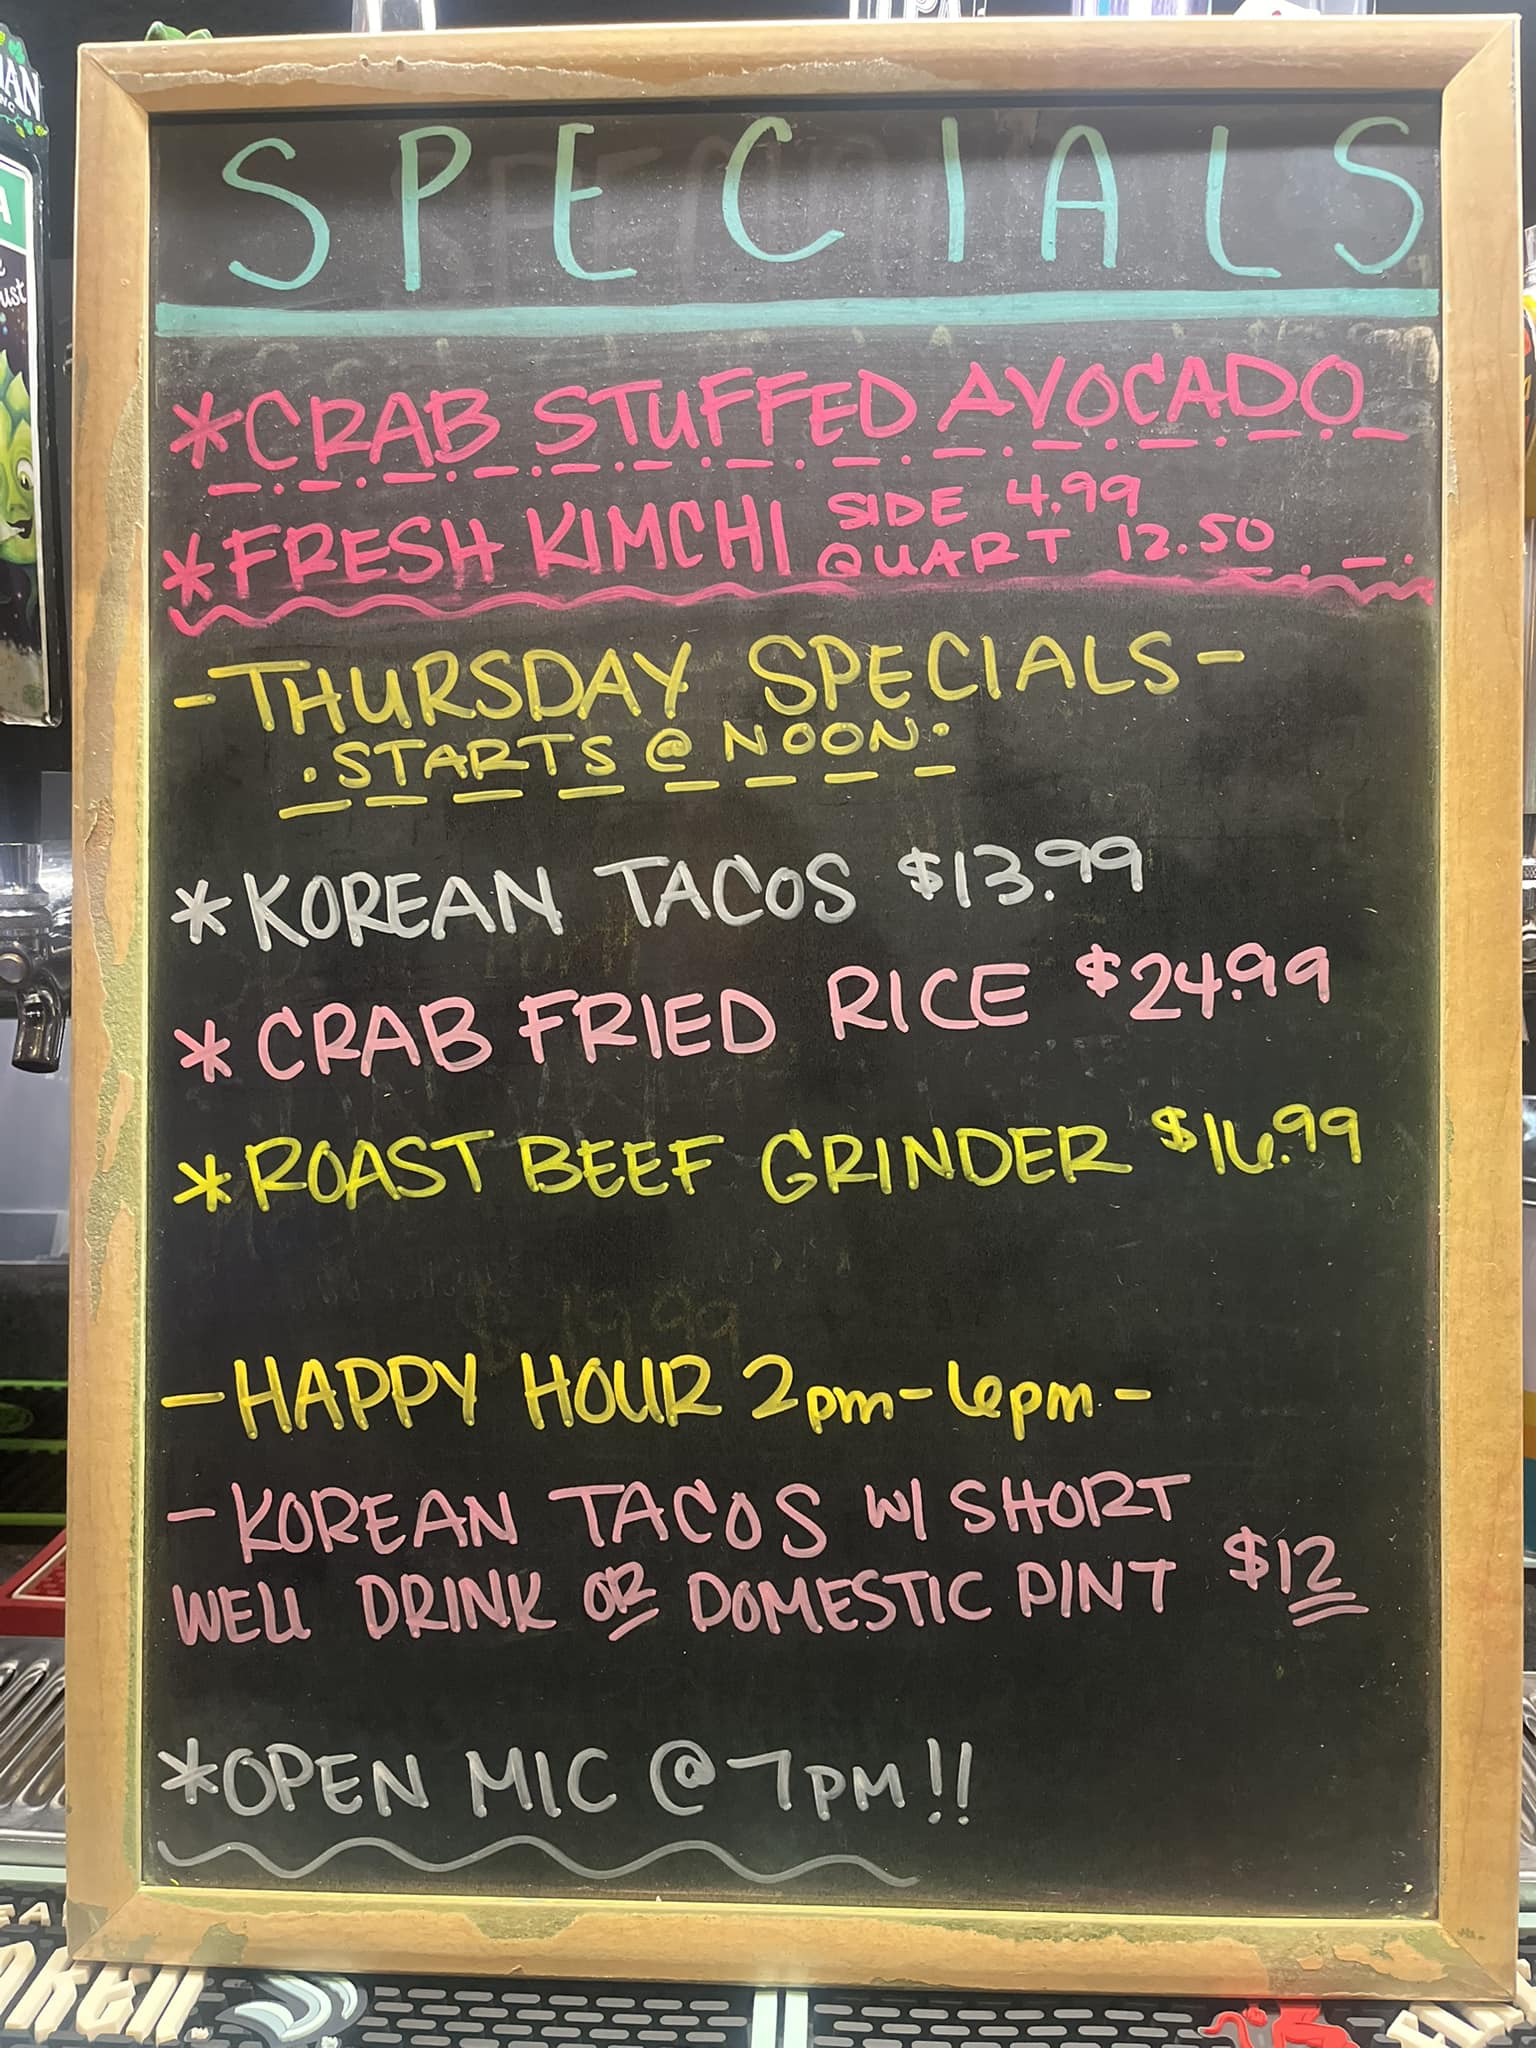 SPECIALS
*CRAB STUFFED AVOCADO
*FRESH KIMCHI SIDE 4.99
QUART 12.50
-THURSDAY SPECIALS-
.STARTS @ NOON.
*KOREAN TACOS $13.99
*CRAB FRIED RICE $24.99
*ROAST BEEF GRINDER $16.99
$19.99
-HAPPY HOUR 2pm-6pm-
-KOREAN TACOS W/ SHORT
WELL DRINK OR DOMESTIC PINT $12
*OPEN MIC @ 7PM!!